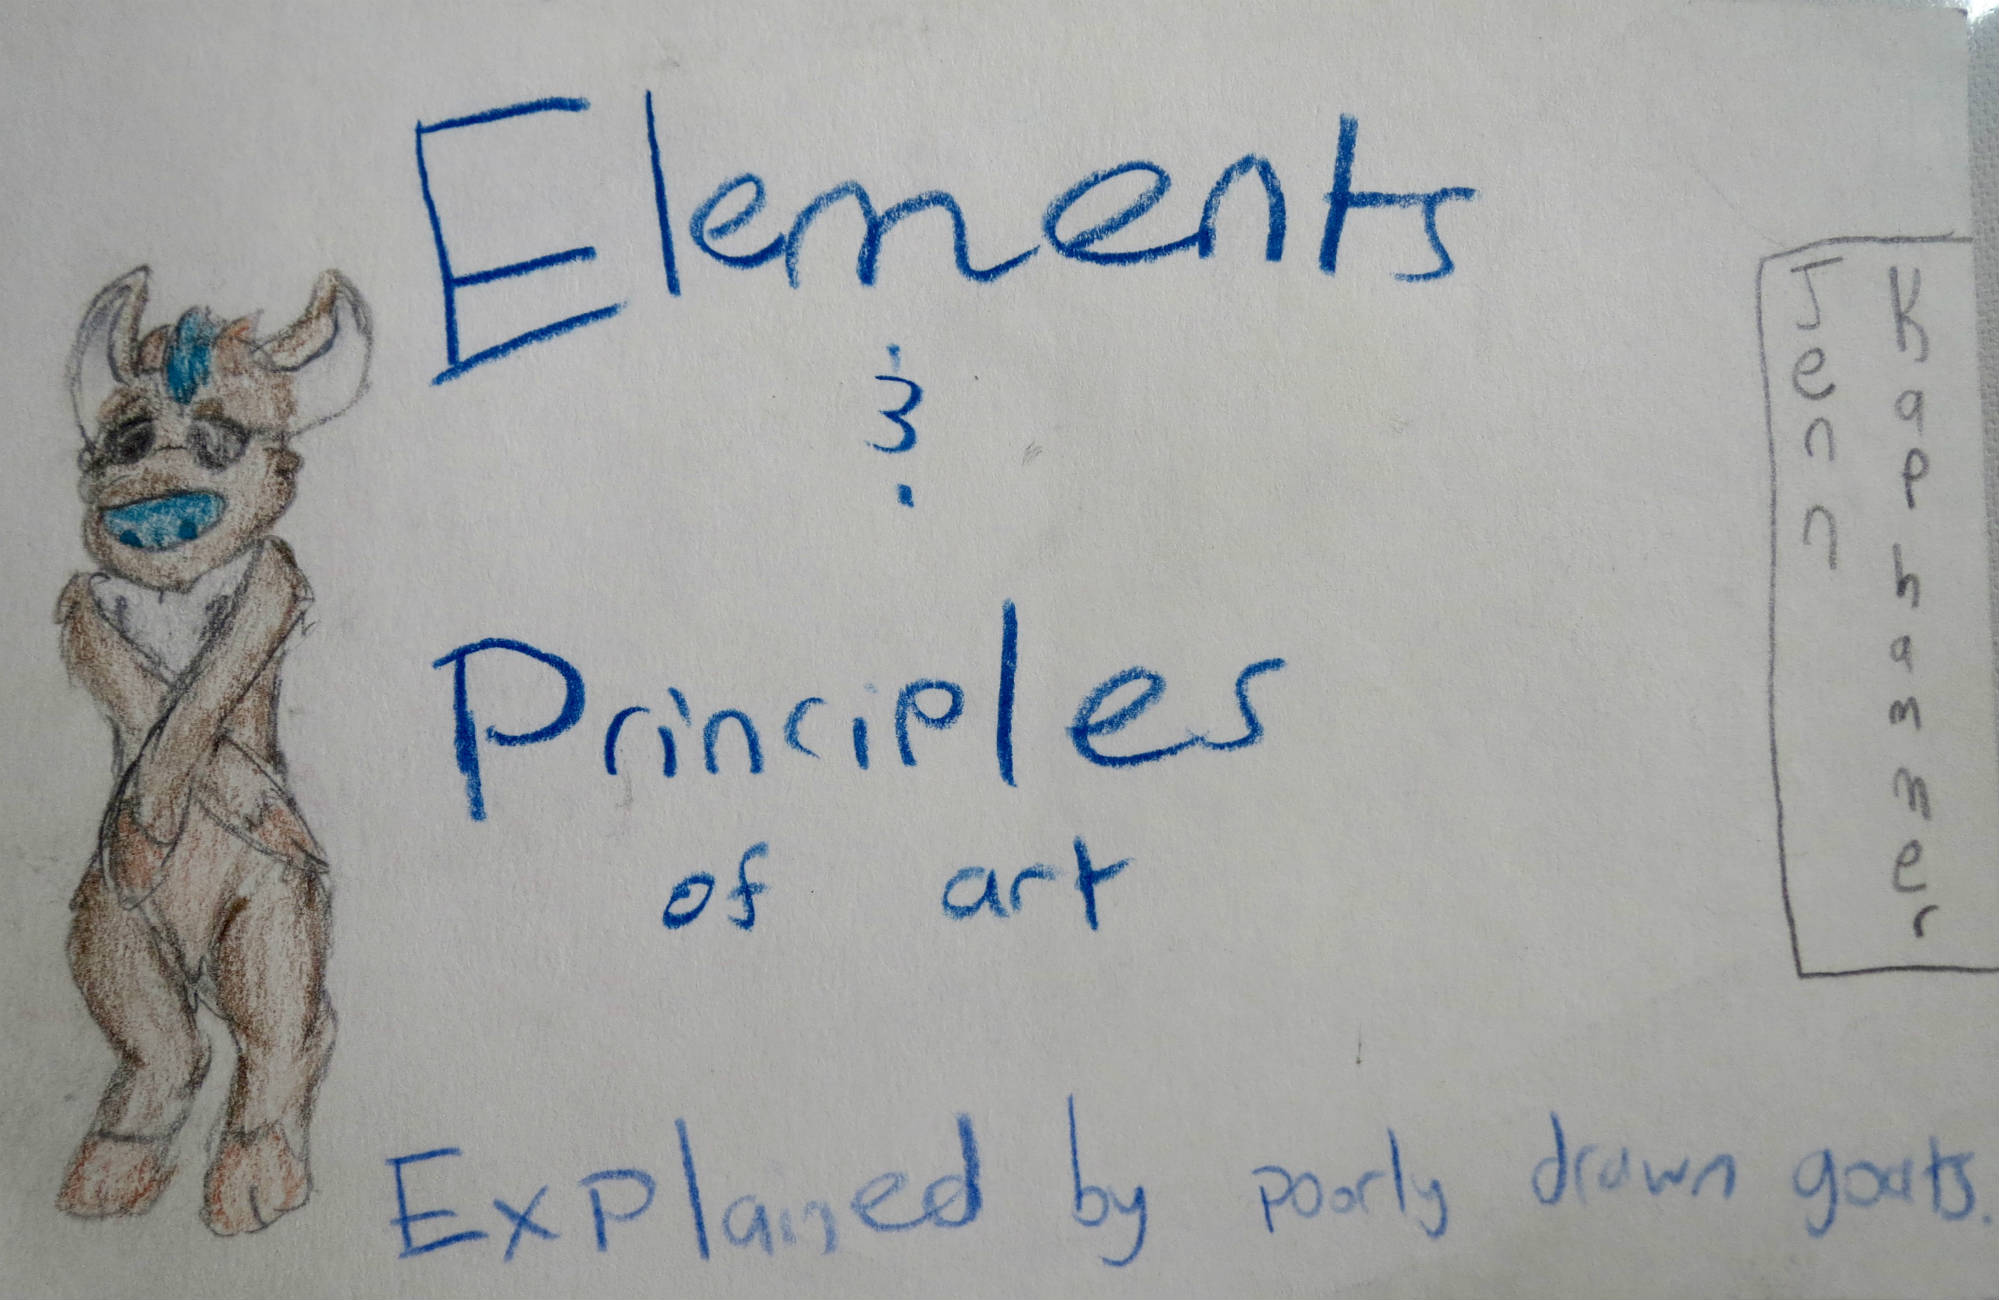 Elements
&
Principles
of art
Explained by poorly drawn goats.
Jenn
Kaphammer